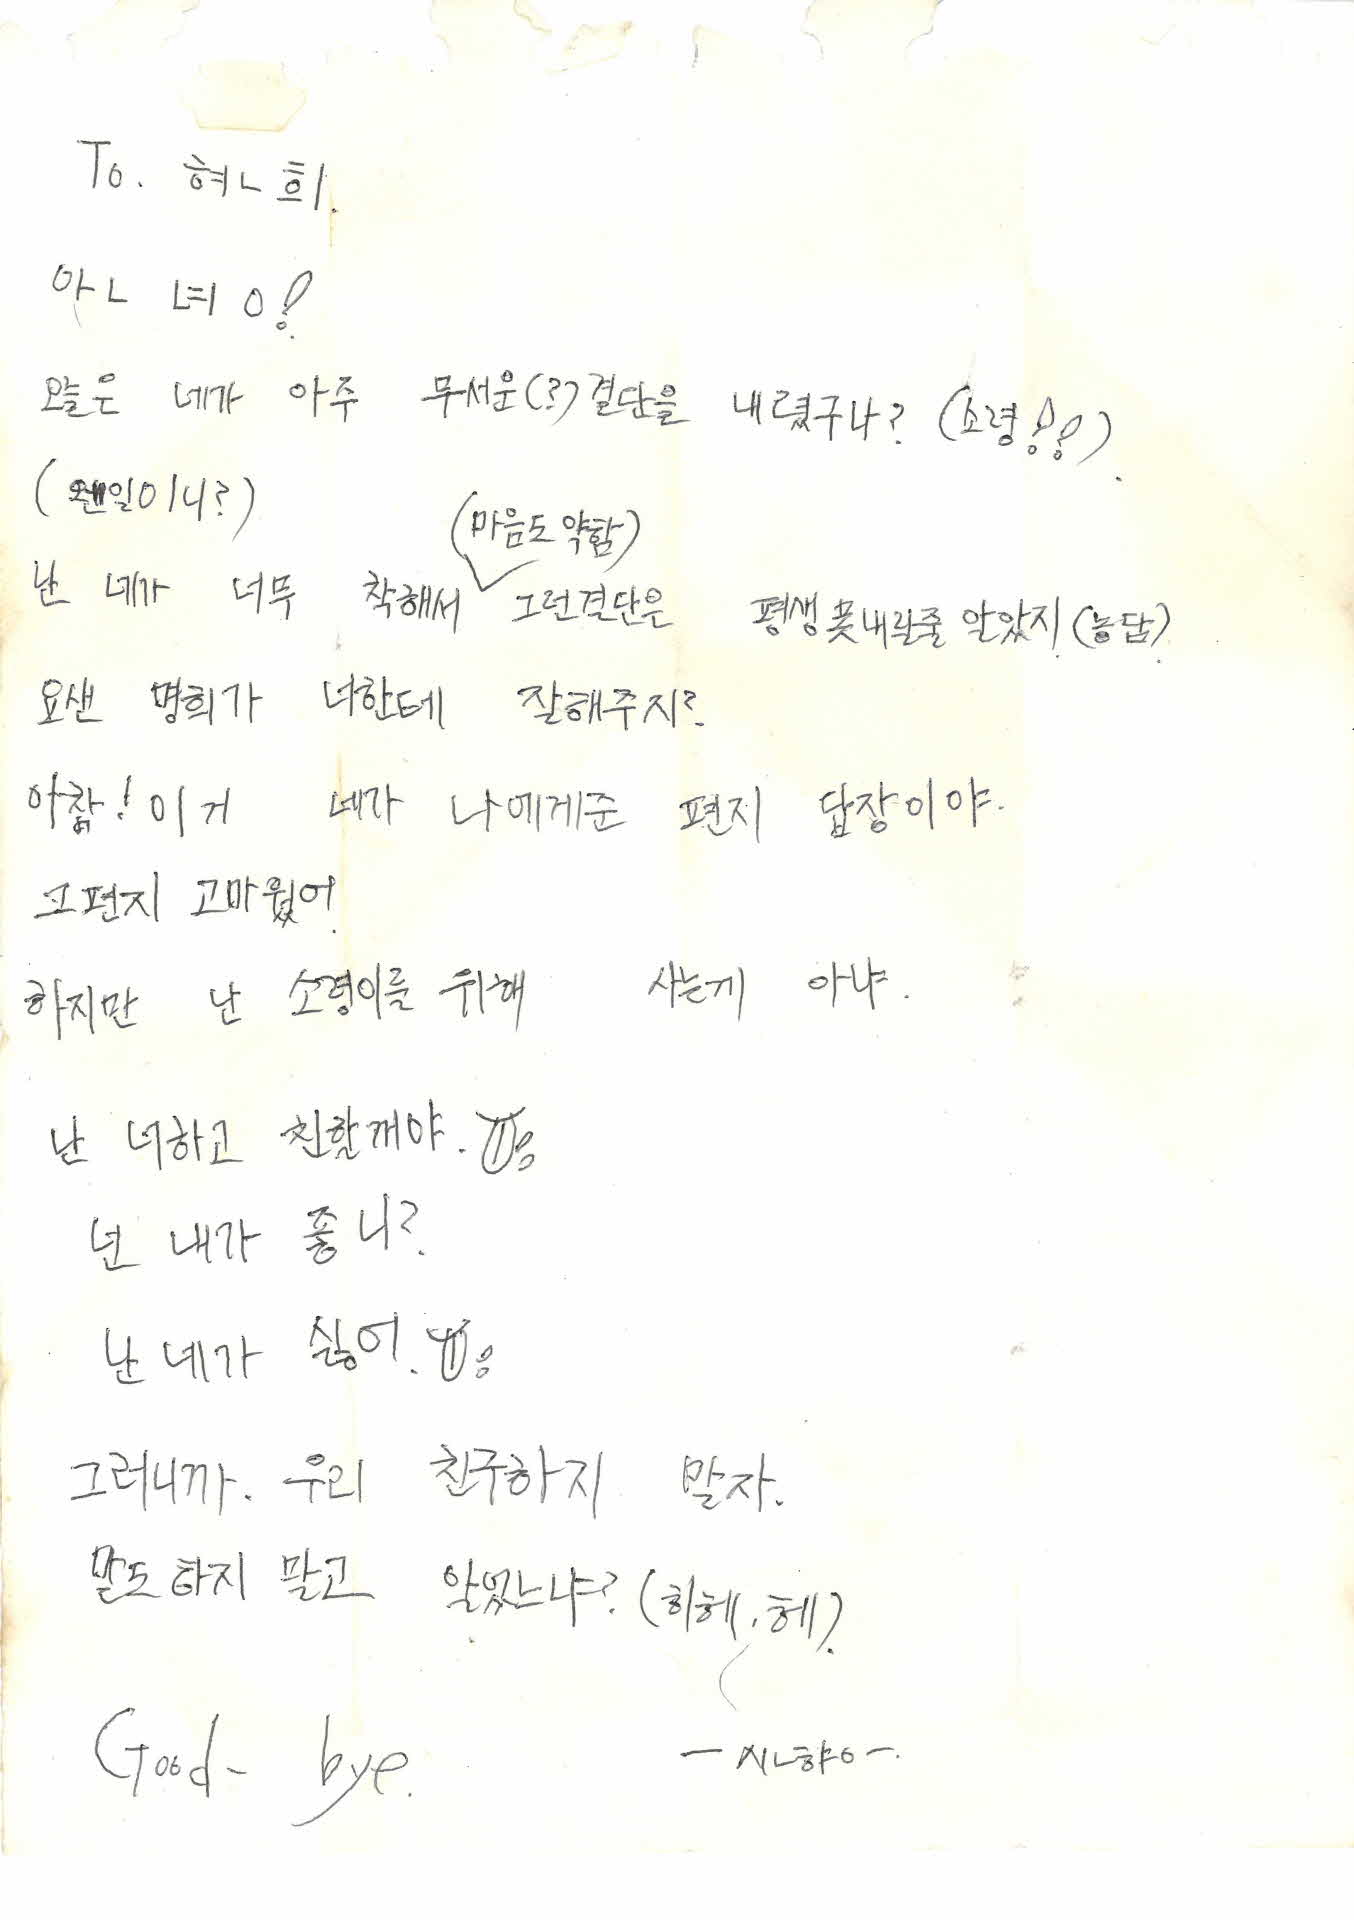 To. 혀ㄴ희.
아ㄴ녀ㅇ!
오늘은 네가 아주 무서운(?)결단을 내렸구나? (소령!!).
(왠일이니?)
(마음도 약함)
난 네가 너무 착해서 그런결단은 평생못내릴줄 알았지.(농담).
요샌 명희가 너한테 잘해주지?
아참! 이거 네가 나에게준 편지 답장이야.
그편지 고마웠어.
하지만 난 소령이를 위해 사는게 아냐.
난 너하고 친할꺼야.
넌 내가 좋니?
난 네가 싫어.
그러니까. 우리 친구하지 말자.
말도하지 말고 알었느냐? (히헤, 헤).
Good- bye. ㅡ시ㄴ햐ㅇㅡ.